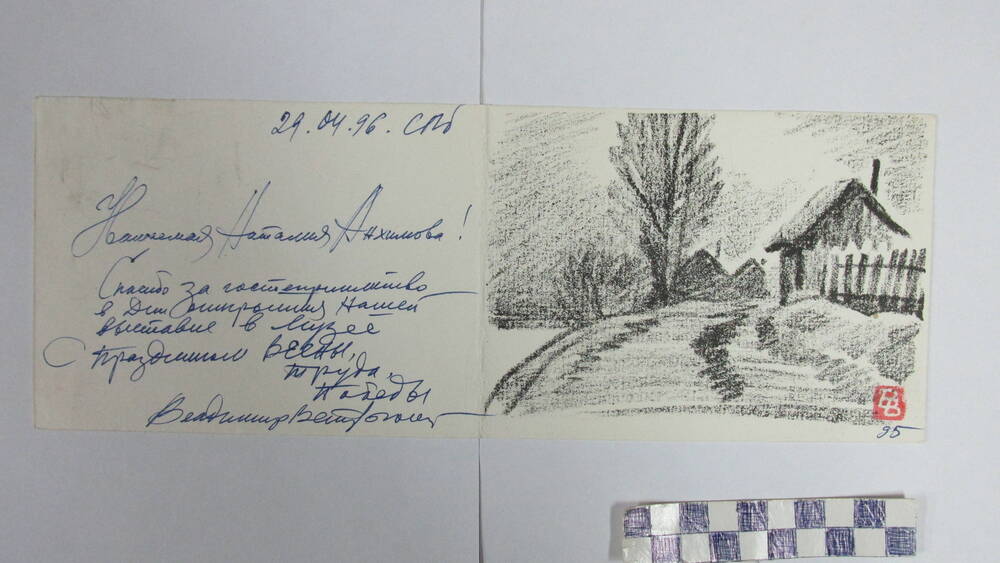 29.04.96. СПб
Уважаемая Наталия Анхимовна!
Спасибо за гостеприимство
в Дни Открытия Нашей
выставке в Музее
С праздником Весны,
труда,
Победы
Владимир
95